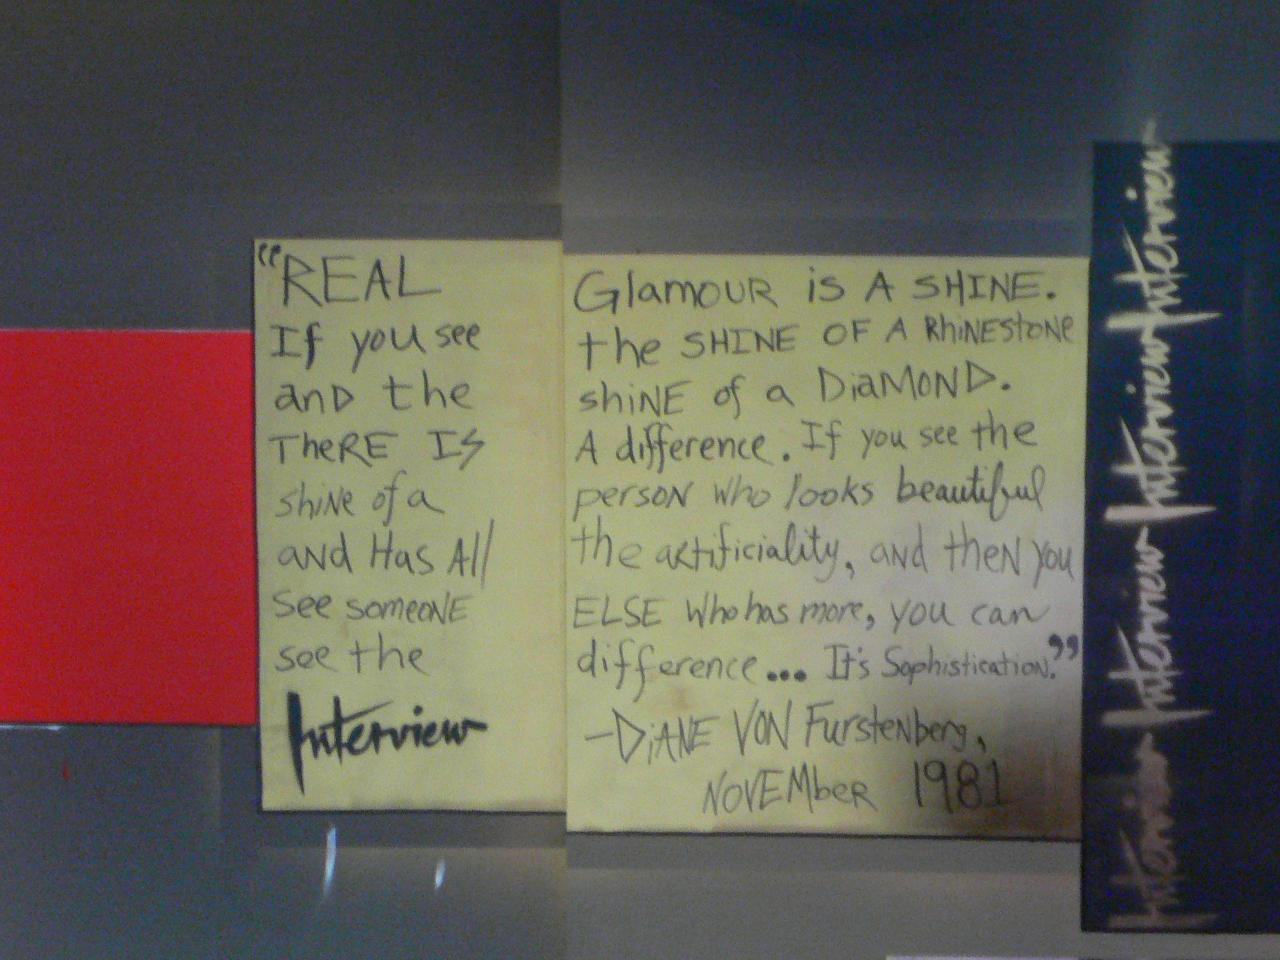 "REAL Glamour is A SHINE.
If you see the SHINE OF A RhiNEStONE
and the shiNE of a DiaMOND.
TheRE IS A difference. If you see the
shine of a person who looks beautiful
and Has All the artificiality, and then you
see someone ELSE who has more, you can
see the difference... It's Sophistication."
Interview
—DiANE VON Furstenberg,
NOVEMber 1981
Interview
Interview
Interview
Interview